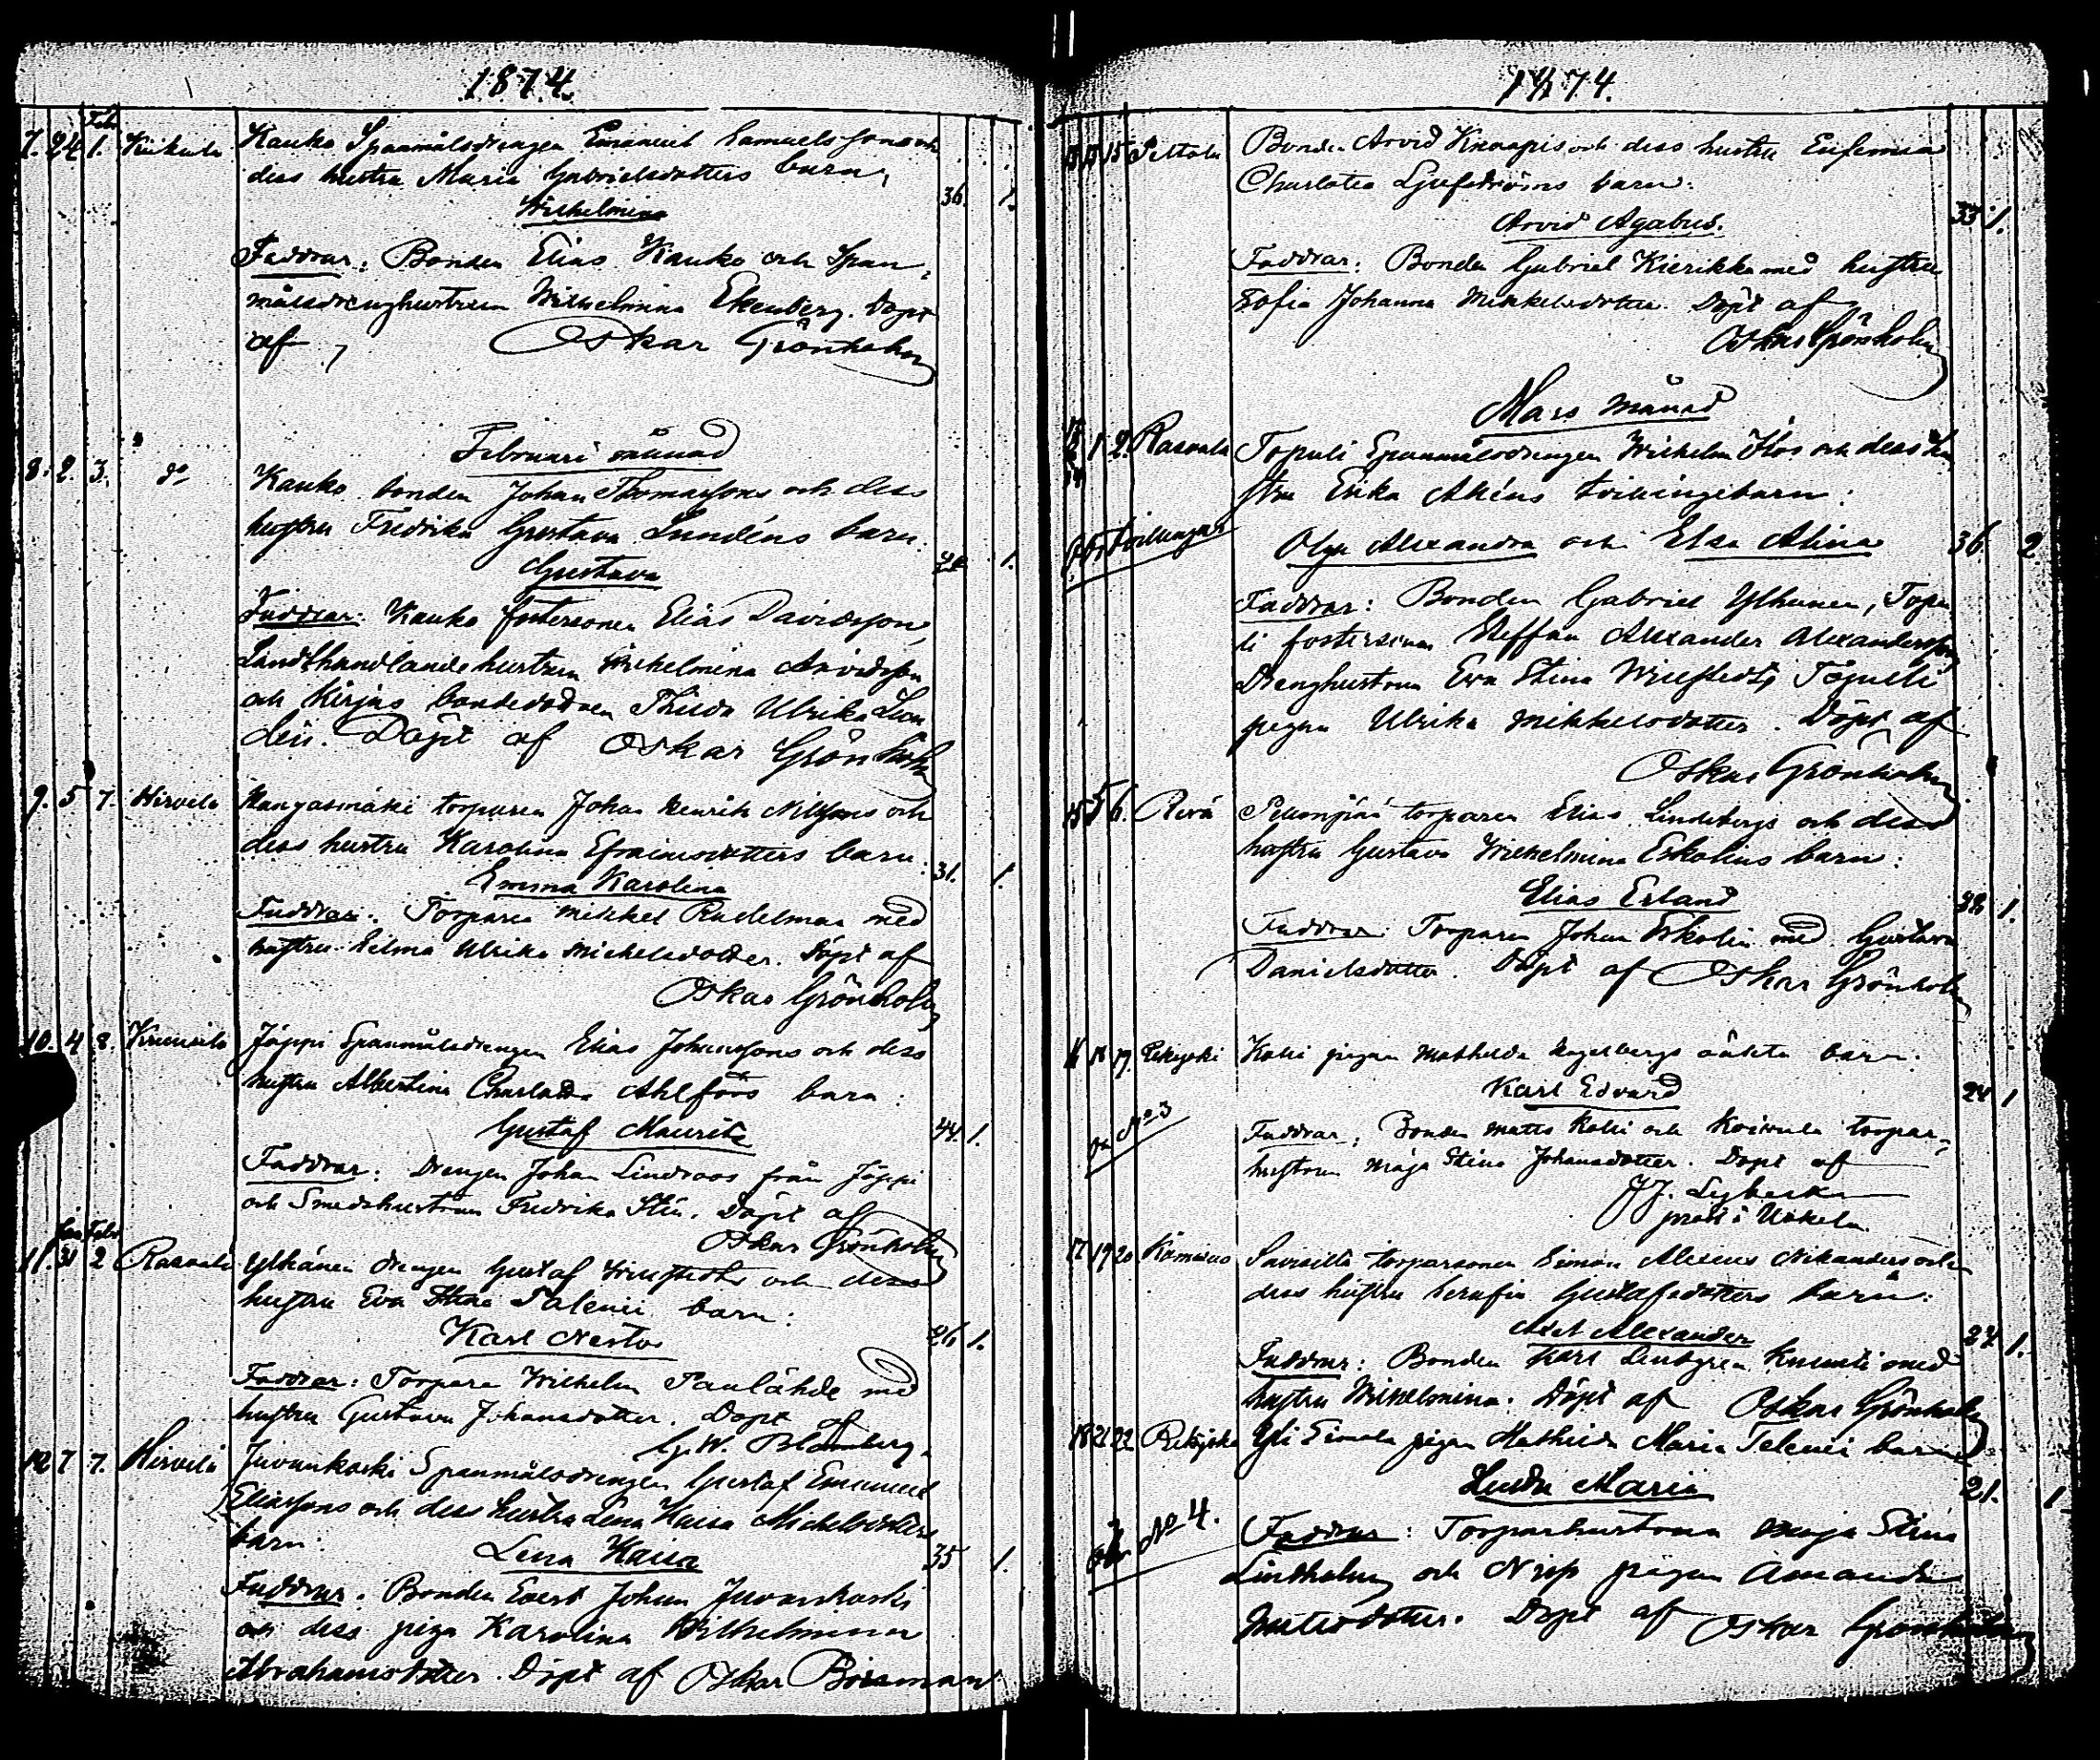 1874.
Febr.
7. 24 1. Kiukula Kauko Spanmålsdrengen Emanuel Samuelssons och
dess hustru Maria Gabrielsdotters barn,
36. 1.
Wilhelmina
Faddrar: Bonden Elias Kauko och Span-
målsdrenghustrun Wilhelmina Ekenberg. Döpt
af Oskar Grönholm
Februari månad
8. 2. 3. do Kauko bonden Johan Thomassons och dess
hustru Fredrika Gustava Lundéns barn:
Gustava 1.
Faddrar: Kauko fostersonen Elias Davidsson,
Landthandlande hustrun Wilhelmina Arvidsson
och Kirjas bondedottren Ulrika Lun
dén. Döpt af Oskar Grönholm
9. 5 7. Hirvelä Kangasmäki torparen Johan Henrik Nilssons och
dess hustru Karolina Efraimsdotters barn: 31. 1.
Emma Karolina
Faddrar: Torparen Mikkel Rudelman med
hustru Selma Ulrika Michelsdotter. Döpt af
Oskar Grönholm
10. 4 8. Jäppi Spanmålsdrengen Elias Johanssons och dess
hustru Albertina Charlotta Ahlfors barn:
Gustaf Maurits 44. 1.
Faddrar: Drengen Johan Lindroos från Jäppi
och Smedshustrun Fredrika Stén. Döpt af
Oskar Grönholm
Jan Febr.
11. 31 2 Rasvala Ylhänen drengen Gustaf och dess
hustru Eva Stina Palenii barn:
Karl Nestor 26 1.
Faddrar: Torparen Wilhelm Paulähde med
hustru Gustava Johansdotter. Döpt af
G. W. Blomberg.
12 7 7. Hirvelä Juvankoski Spanmålsdrengen Gustaf Emanuel
Eliassons och dess hustru Lena Kaisa Michelsdotters
barn:
Lena Kaisa 35 1.
Faddrar: Bonden Evert Johan Juvankoski
och dess piga Karolina Wilhelmina
Abrahamsdotter. Döpt af Oskar Boisman
1874.
15 Peltola Bonden Arvid Knaapis och dess hustru Eufemia
Charlotta barn:
Arvid Agabus. 33 1.
Faddrar: Bonden Gabriel Kierikka med hustru
Sofia Johanna Mikkelsdotter. Döpt af
Oskar Grönholm
Mars månad
1 2. Rasvala Topuli Spanmålsdrengen Wilhelm och dess hu
stru Erika Aléns tvillingebarn:
tvillingar Olga Alexandra och Elsa Alina 36 2
Faddrar: Bonden Gabriel Ylhänen, Topu
li fostersonen Steffan Alexander Alexandersson,
Drenghustrun Eva Stina Topuli
pigan Ulrika Mikkelsdotter. Döpt af
Oskar Grönholm
15 5 6. Perä torparen Elias Lindebergs och dess
hustru Gustava Wilhelmina Eskolins barn:
Elias Erland 1.
Faddrar: Torparen Johan Eskolin med Gustava
Danielsdotter. Döpt af Oskar Grönholm
16 Kolu pigan Mathilda oäkta barn:
Karl Edvard 24 1
oä No 3
Faddrar: Bonden Matts Kolu och torpar-
hustrun Maja Stina Johansdotter. Döpt af
prest i Uskela
17 19 20 torparsonen Simon Alexius Nikanders och
dess hustru Serafia Gustafsdotters barn:
Axel Alexander 24 1.
Faddrar: Bonden Karl Lindgren med
hustru Wilhelmina. Döpt af Oskar Grönholm
18 21 22 Yli Simola pigan Mathilda Maria Telenii barn
Hulda Maria 21. 1
oä No 4.
Faddrar: Torparhustrun Maja Stina
Lindholm och pigan Amanda
Döpt af Oskar Grönholm